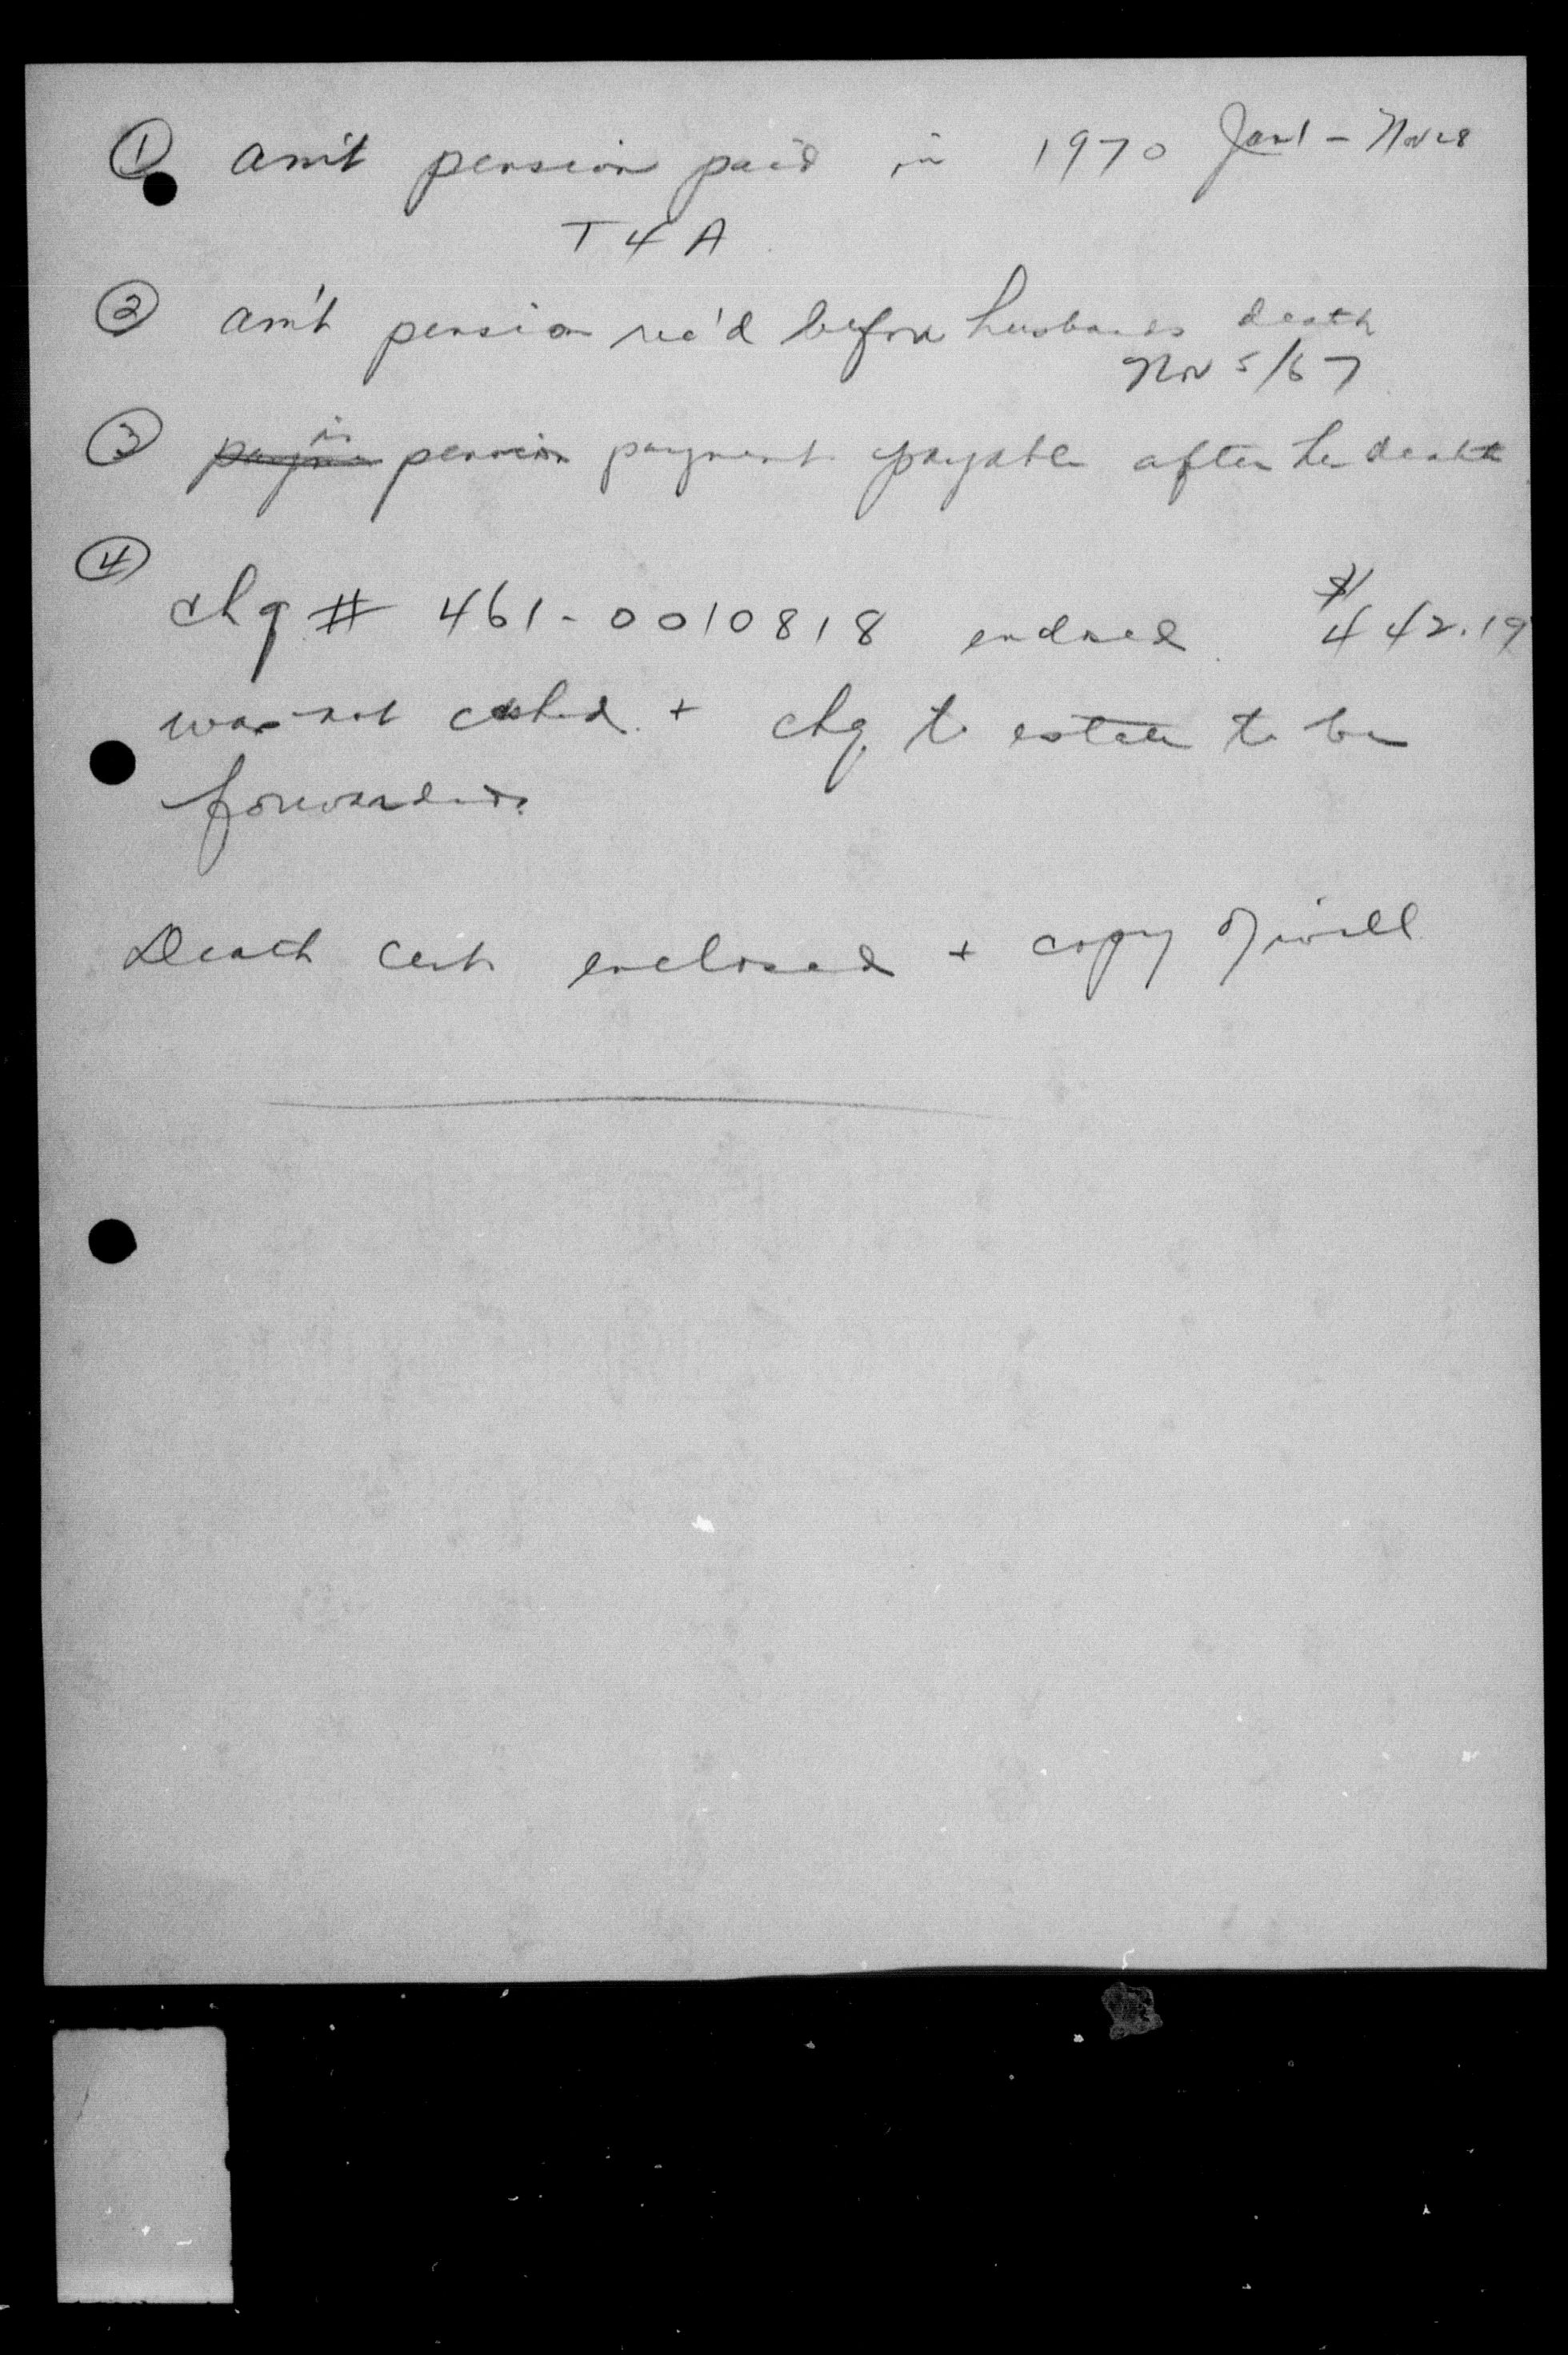 ① am't pension paid in 1970 Jan 1 - Nov 28
T4A
② am't pension rec'd before husbands death
Nov 5/67
③ is pension payment payable after her death
④
chq # 461-0010818 enclosed $442.19
was not cashed + chq to estate to be
forwarded.
Death cert enclosed + copy of will